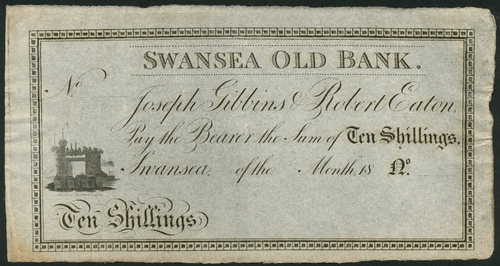 SWANSEA OLD BANK.
No
Joseph Gibbins & Robert Eaton,
Pay the Bearer the Sum of Ten Shillings.
Swansea, of the Month, 18 No.
Ten Shillings